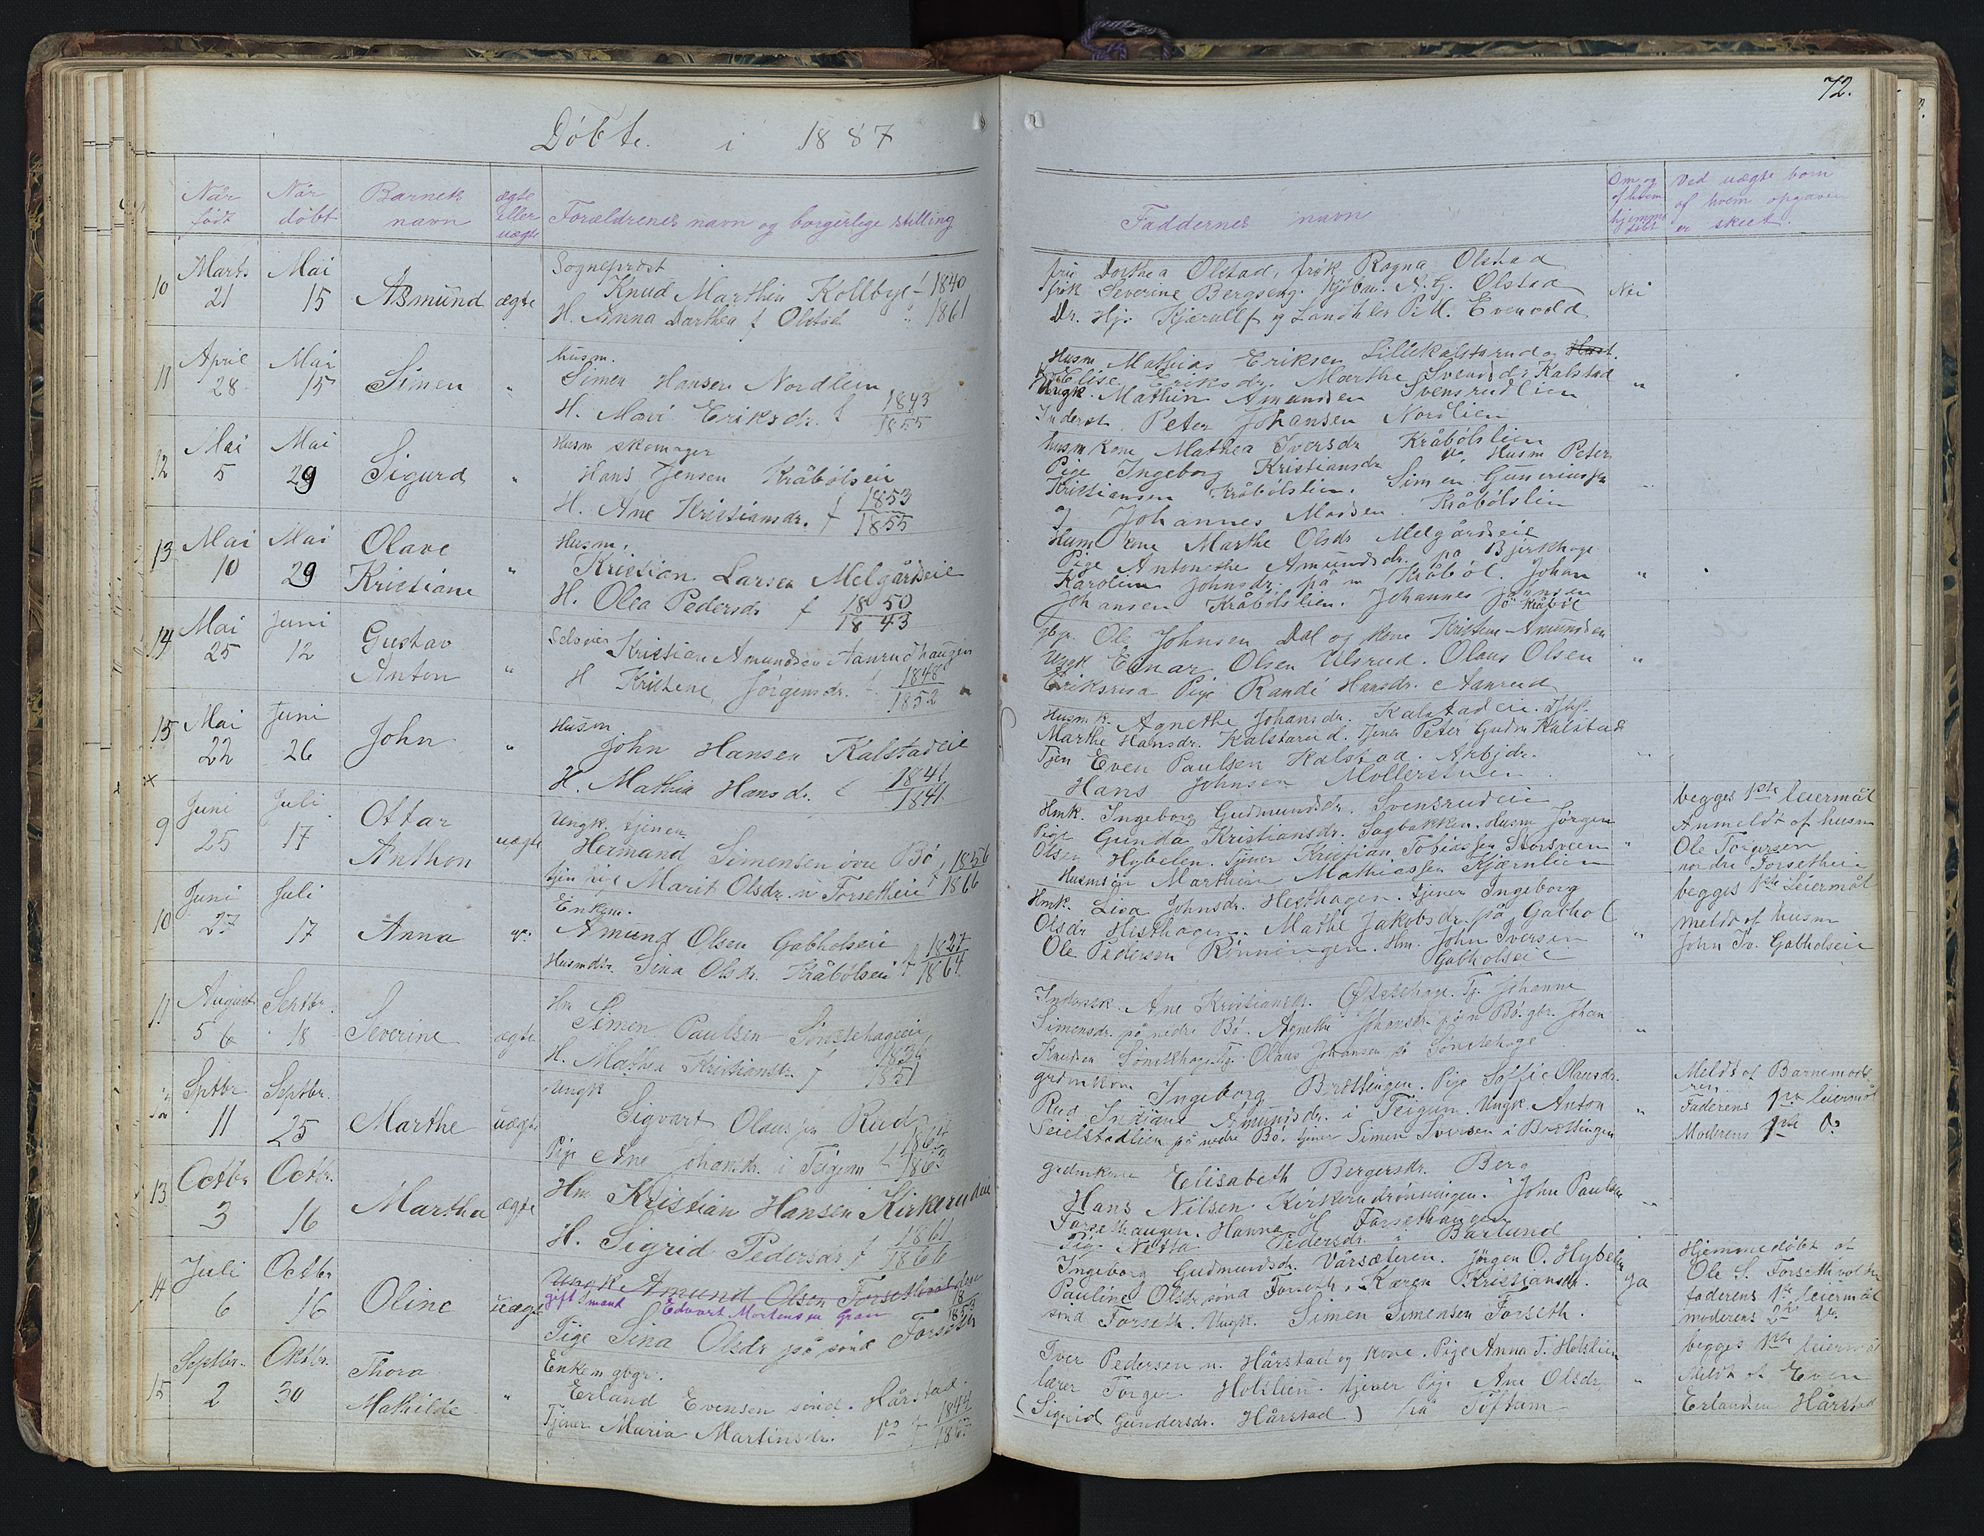 72.
Døbte i 1887
Når født
Når døbt
Barnets navn
ægte eller uægte
Forældrenes navn og borgerlige stilling
Faddernes navn
Om og af hvem hjemmedøbt
Ved uægte born af hvem opgaven er skeet.
10 Marts 21 Mai 15 Asmund ægte
Sogneprøst
Knud Marthin Kolbye 1840
H. Anna Darthea f Olstad " 1861
fru Dorthea Olstad, frøk Ragna Olstad
frøk Severine Bergseng. N. G. Olstad
Dr. Hjr Kjerulff og Evenvold
Nei
11 April 28 Mai 15 Simen "
husm.
Simen Hansen Nordlien
H. Mari Eriksdr. f 1843 1855
Husm Mathias Eriksen Lillekalstarud og
Elise Eriksdr. Marthe Svendsdr Kalstad
Ungk. Mathin Amundsen Svensrudlien
Inderst Peter Johansen Nordlien
"
12 Mai 5 Mai 29 Sigurd "
Husm skomager
Hans Jensen Kråbølseie
H. Ane Kristiansdr. f 1853 1855
husm kone Mathea Iversdr Kråbølslien
Pige Ingeborg Kristiansdr Husm Peter
Kristiansen Kråbølslien. Simen Gunerius
og Johannes Madsen Kråbølslien
13 Mai 10 Mai 29 Olave Kristiane "
Husm.
Kristian Larsen Melgårdseie
H. Olea Pedersdr f 1850 1843
Husm kone Marthe Olsdr Melgårdseie
Pige Antonethe Amundsdr. på Bjerkehage
Karoline Johnsdr. på n Kråbøl. Johan
Johansen Kråbølslien. Johannes Jønsen
Kråbøl
"
14 Mai 25 Juni 12 Gustav Anton "
Selveier Kristian Amundsen Aanrudhaugen
H Kristine Jørgensdr. f. 1848 1852
gbr. Ole Johnsen Dal og kone Kristine Amundsen
Ungk Einar Olsen Ulsrud. Olaus Olsen
Eriksrud Pige Randi Hansdr. Aanrud
"
15 Mai 22 Juni 26 John "
Husm
John Hansen Kalstadeie
H. Mathia Hansdr. f 1841 1841
Husm k. Agnethe Johansdr. Kalstadeie.
Marthe Hansdr. Kalstadeie. tjener Peter Gudm Kalstad
Tjen Even Paulsen Kalstad. Arbjdr.
Hans Johnsen Mollerstuen
9 Juni 25 Juli 17 Ottar Anthon uægte
Ungk. tjener
Hermand Simensen øvre Bø, 1856
tjen pige Marit Olsdr. n Forsetheie f 1866
Hmk. Ingeborg Gudmundsdr. Svensrudeie
Pige Gunda Kristiansdr. Sagbakken. Husm Jørgen
Olsen Hybelen. tjener Kristian Tobiassen Storsveen
Husmsøn Marthin Mathiassen Kjernlien
begges 1ste leiermål
Anmeldt af husm
Ole Torgersen
nordre Forsetheie
10 Juni 27 Juli 17 Anna
Enkem.
Amund Olsen Gabholseie 1827
Husmdtr. Sina Olsdr. Kråbølseie f 1864
Hmk. Lisa Johnsdr. Hesthagen. tjener Ingeborg
Olsdr Hesthagen. Mathe Jakobsdr. på Gabhol
Ole Pedersen Rønningen. Hm. John Iversen
Gabholseie
"
begges 1ste Leiermål
Meldt af husm
John Iv. Gabholseie
11 August 5 6 Septbr. 18 Severine ægte
Hm
Simen Paulsen Sønstehageeie
H. Mathea Kristiansdr. f 1836 1851
Inderstk. Ane Kristiansdr. Østehage. Tj. Johanne
Simensdr. på nedre Bø. Agnethe Johansdr på n Bø. gbr. Johan
Knudsen Sønstehage. Tj. Olaus Johansen på Sønstehage
"
Septbr. 11 Septbr. 25 Marthe uægte
Ungk
Sigvart Olaus Rud
Pige Ane Johansdr. i Teigum f 1864 1863
grdmkone Ingeborg Brættingen. Pige Soffie Olausdr.
Rud Indiane Amundsdr. i Teigum. Ungk. Anton
Seielstadlien på nedre Bø. tjener Simen Iversen i Brættingen
"
Meldt af Barnemoderen
Faderens 1ste leiermål
Moderens 1ste Do
13 Octbr 3 Octbr. 16 Marthea ægte
Hm Kristian Hansen Kirkerudeie
H. Sigrid Pedersdr f 1861 1866
grdmkone Elisabeth Bergersdr. Berg
Hans Nilsen Kirkerudrønningen. John Paulsen
Forsethaugen. Hanna H. Forsethaugen
Pige Netta Pedersdr. i Barlund
"
14 Juli 6 Octbr. 16 Oline uægte
Ungk Amund Olsen
gift mand Edvart Mortensen Grau
Pige Sina Olsdr på sønd Forseth
18 1853
Ingeborg Gudmundsdr. Vårsæteren. Jørgen O. Hybelen
Pauline Olsdr sønd Forseth. Karen Kristiansdr.
sønd Forseth. Ungk. Simen Simensen Forseth.
Ja
Hjemmedøbt af
Ole S. Forsethvolden
faderens 1ste leiermål
moderens 2det Do
15 Septbr. 2 Oktbr. 30 Thora Mathilde "
Enkem gbgr.
Erland Evensen sønd. Hårstad.
Tjener Maria Martinsdr. Do f 1844 1865
Iver Pedersen n. Hårstad og kone. Pige Anna T. Holslien
lærer Torger Holslien. tjener Pige Ane Olsdr
(Sigrid Gundersdr. Hårstad) på Toftum
"
begges 1ste leiermål
Meldt af Even
Erlandsen Hårstad